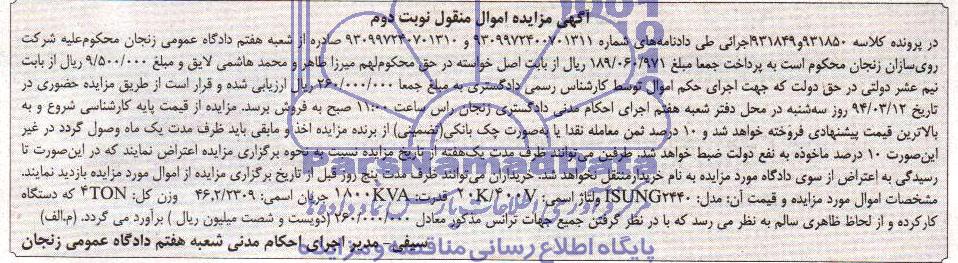 آگهی مزایده اموال منقول نوبت دوم
در پرونده کلاسه ۹۳۱۸۵۰و۹۳۱۸۴۹اجرائی طی دادنامه‌های شماره ۹۳۰۹۹۷۲۴۰۰۷۰۱۳۱۱ و ۹۳۰۹۹۷۲۴۰۷۰۱۳۱۰ صادره از شعبه هفتم دادگاه عمومی زنجان محکوم‌علیه شرکت
روی‌سازان زنجان محکوم است به پرداخت جمعا مبلغ ۱۸۹/۰۶۰/۹۷۱ ریال از بابت اصل خواسته در حق محکوم‌لهم میرزا طاهر و محمد هاشمی لایق و مبلغ ۹/۵۰۰/۰۰۰ ریال از بابت
نیم عشر دولتی در حق دولت که جهت اجرای حکم اموال توسط کارشناس رسمی دادگستری به مبلغ جمعا ۲۶۰/۰۰۰/۰۰۰ ریال ارزیابی شده و قرار است از طریق مزایده حضوری در
تاریخ ۹۴/۰۳/۱۲ روز سه‌شنبه در محل دفتر شعبه هفتم اجرای احکام مدنی دادگستری زنجان راس ساعت ۱۱:۰۰ صبح به فروش برسد. مزایده از قیمت پایه کارشناسی شروع و به
بالاترین قیمت پیشنهادی فروخته خواهد شد و ۱۰ درصد ثمن معامله نقدا یا به‌صورت چک بانکی(تضمینی) از برنده مزایده اخذ و مابقی باید ظرف مدت یک ماه وصول گردد در غیر
این‌صورت ۱۰ درصد ماخوذه به نفع دولت ضبط خواهد شد. طرفین می‌توانند ظرف مدت یک‌هفته از تاریخ مزایده نسبت به نحوه برگزاری مزایده اعتراض نمایند که در این‌صورت تا
رسیدگی به اعتراض از سوی دادگاه مورد مزایده به نام خریدار منتقل نخواهد شد. خریداران می‌توانند ظرف مدت پنج روز قبل از تاریخ برگزاری مزایده از اموال مورد مزایده بازدید نمایند.
مشخصات اموال مورد مزایده و قیمت آن: مدل: ISUNG۲۴۴۰ ولتاژ اسمی: ۲۰K/۴۰۰V قدرت: ۱۸۰۰KVA جریان اسمی: ۴۶,۲/۲۳۰۹ وزن کل: ۴TON که دستگاه
کارکرده و از لحاظ ظاهری سالم به نظر می رسد که با در نظر گرفتن جمیع جهات ترانس مذکور معادل ۲۶۰/۰۰۰/۰۰۰ (دویست و شصت میلیون ریال ) برآورد می گردد. (م.الف)
سیفی- مدیر اجرای احکام مدنی شعبه هفتم دادگاه عمومی زنجان
پایگاه اطلاع رسانی مناقصه و مزایده